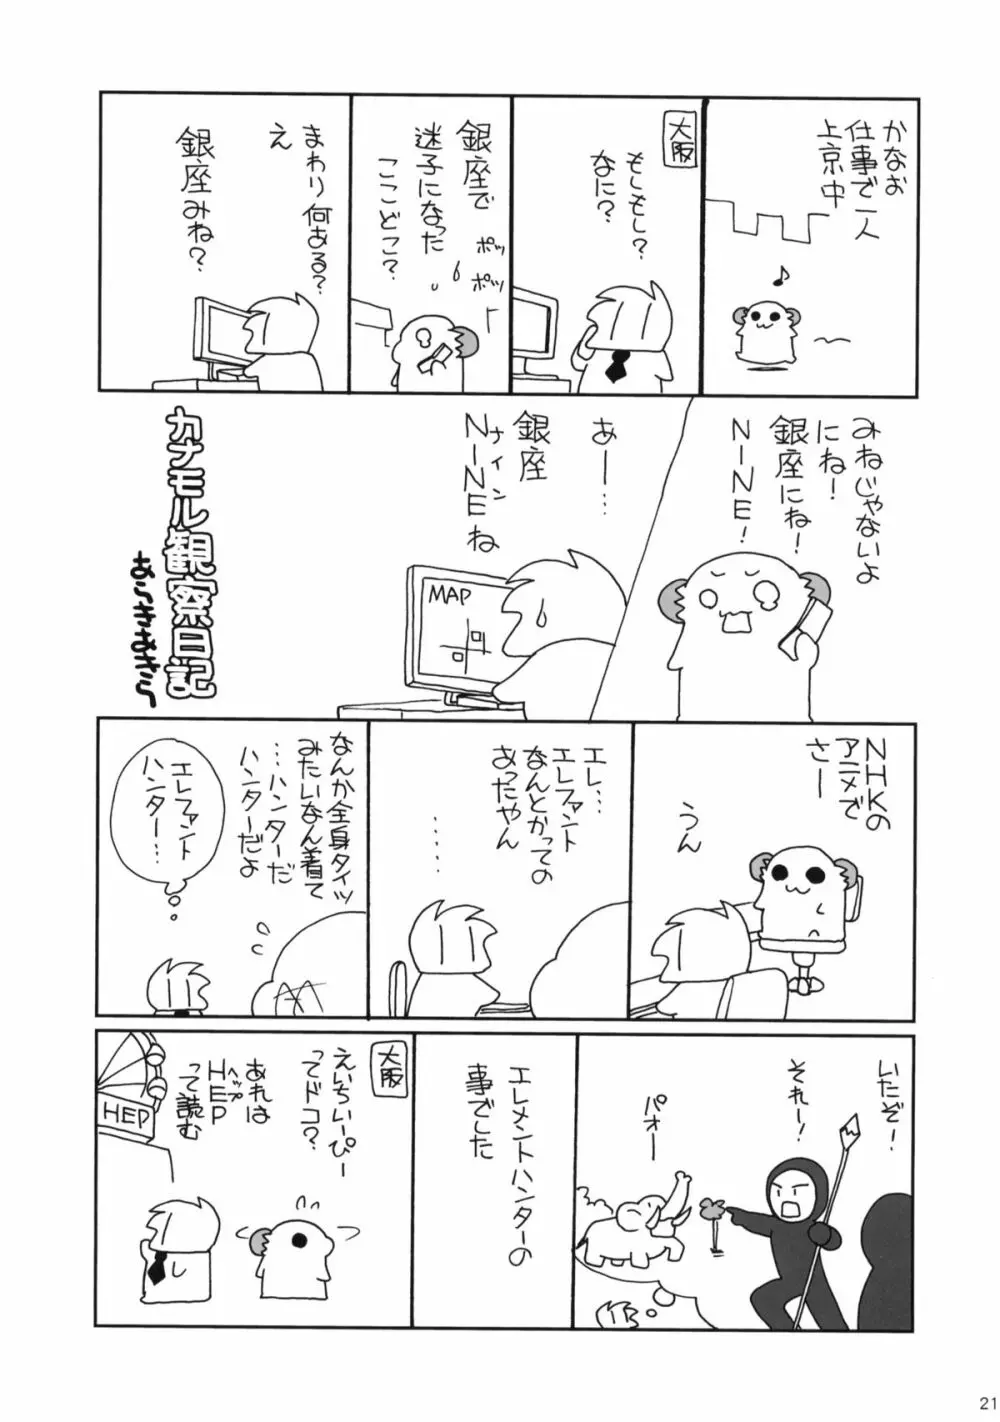 かなお
仕事で一人
上京中
大阪
もしもし？
なに？
銀座で
迷子になった
ここどこ？
ポッ
ポッ
まわり何ある？
え
銀座みね？
みねじゃないよ
にね！
銀座にね！
NINE！
あー…
銀座
NINEね
ナイン
MAP
カナモル観察日記
あらきあきら
NHKの
アニメで
さー
うん
エレ…
エレファント
なんとかっての
あったやん
……
なんか全身タイツ
みたいなん着て
…ハンターだ
ハンターだよ
エレファント
ハンター…
いたぞ！
それー！
パオー
エレメントハンターの
事でした
大阪
えいちいーぴー
ってドコ？
あれは
HEP
ヘップ
って読む
HEP
21